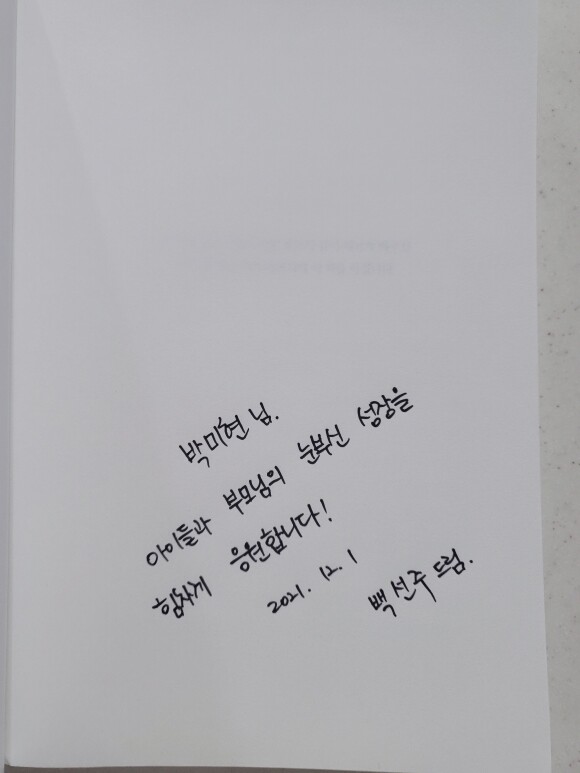 박미현 님.
아이들과 부모님의 눈부신 성장을
힘차게 응원합니다!
2021. 12. 1
백선주 드림.